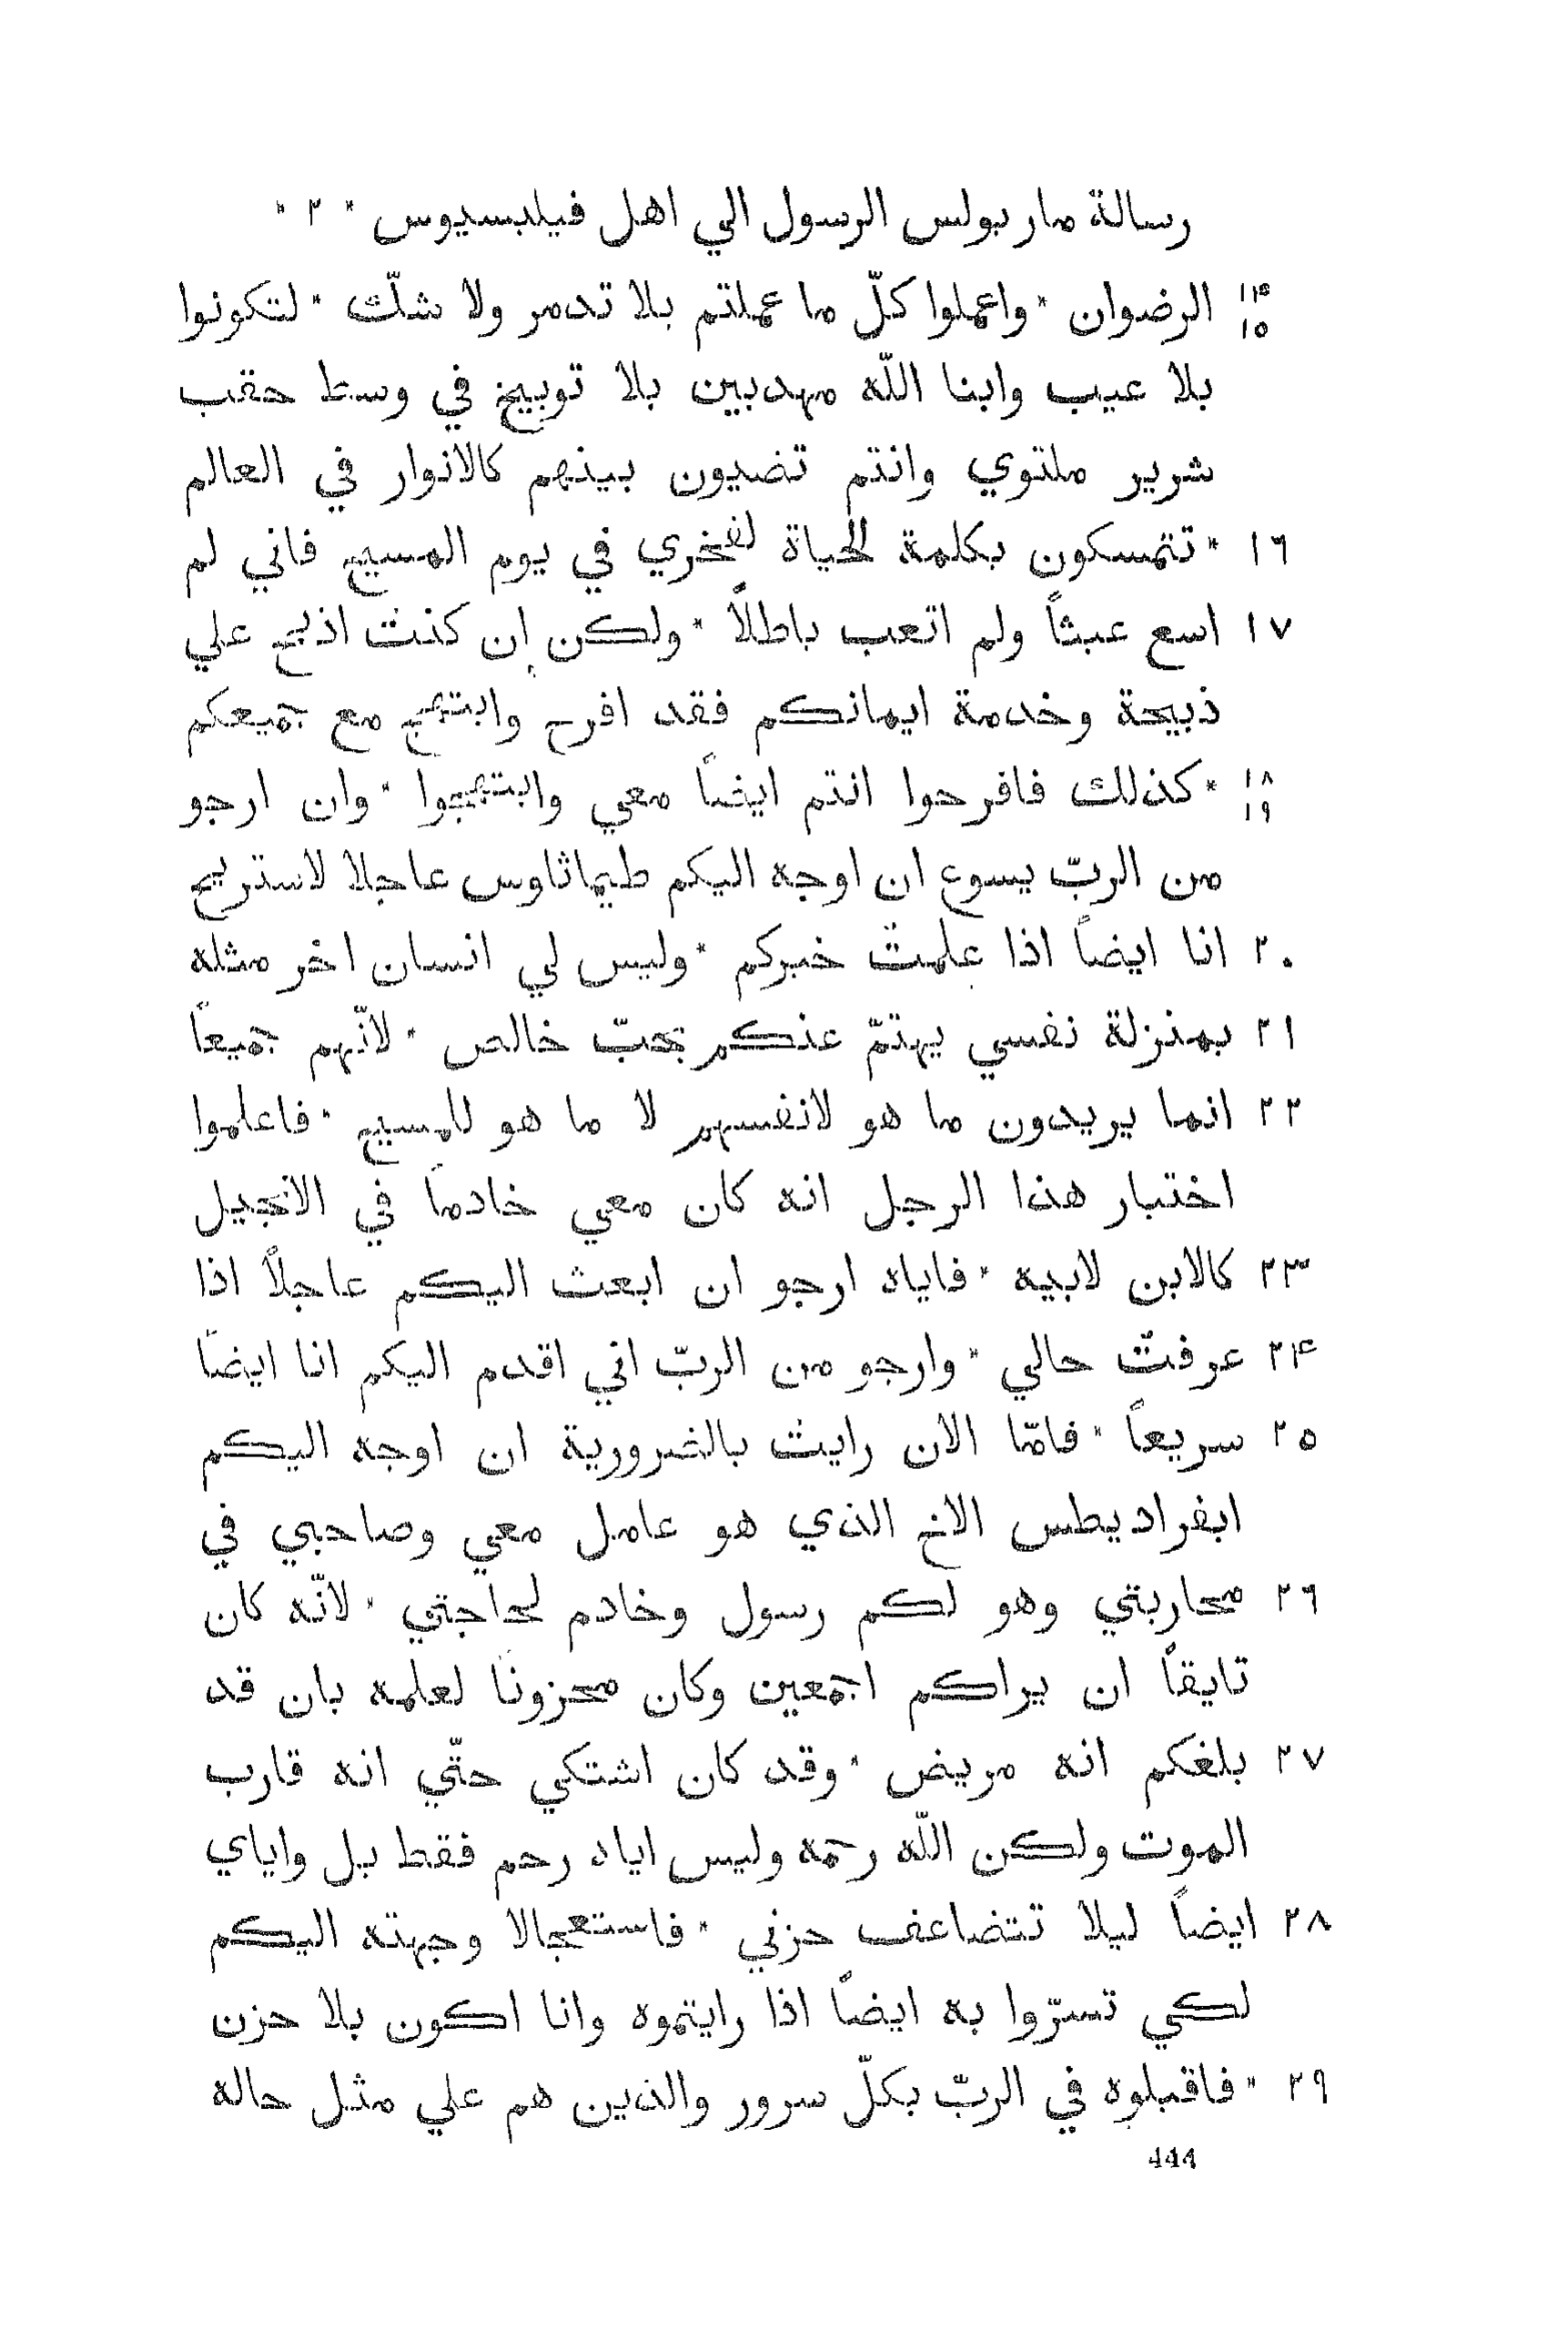 رسالة مار بولس الرسول الي اهل فيلبسيوس * ٢ *
١٤ ١٥ الرضوان * واعملوا كلّ ما عملتم بلا تدمر ولا شكّ * لتكونوا
بلا عيب وابنا اللّه مهدبين بلا توبيخ في وسط حقب
شرير ملتوي وانتم تضيون بينهم كالانوار في العالم
١٦ * تتمسكون بكلمة الحياة لفخري في يوم المسيح فاني لم
١٧ اسع عبثاً ولم اتعب باطلاً * ولكن إن كنت اذبح علي
ذبيحة وخدمة ايمانكم فقد افرح وابتهج مع جميعكم
١٨ ١٩ * كذلك فافرحوا انتم ايضاً معي وابتهجوا * وان ارجو
من الربّ يسوع ان اوجه اليكم طيماثاوس عاجلا لاستريح
٢٠ انا ايضاً اذا علمت خبركم * وليس لي انسان اخر مثله
٢١ بمنزلة نفسي يهتمّ عنكم بحبّ خالص * لانّهم جميعاً
٢٢ انما يريدون ما هو لانفسهم لا ما هو للمسيح * فاعلموا
اختبار هذا الرجل انه كان معي خادماً في الانجيل
٢٣ كالابن لابيه * فاياه ارجو ان ابعث اليكم عاجلاً اذا
٢٤ عرفت حالي * وارجو من الربّ اني اقدم اليكم انا ايضاً
٢٥ سريعاً * فامّا الان رايت بالضرورية ان اوجه اليكم
ابفراديطس الاخ الذي هو عامل معي وصاحبي في
٢٦ محاربتي وهو لكم رسول وخادم لحاجتي * لانّه كان
تايقاً ان يراكم اجمعين وكان محزوناً لعلمه بان قد
٢٧ بلغكم انه مريض * وقد كان اشتكي حتّي انه قارب
الموت ولكن اللّه رحمه وليس اياه رحم فقط بل واياي
٢٨ ايضاً ليلا تتضاعف حزني * فاستعجالا وجهته اليكم
لكي تسرّوا به ايضاً اذا رايتموه وانا اكون بلا حزن
٢٩ * فاقبلوه في الربّ بكلّ سرور والذين هم علي مثل حاله
444